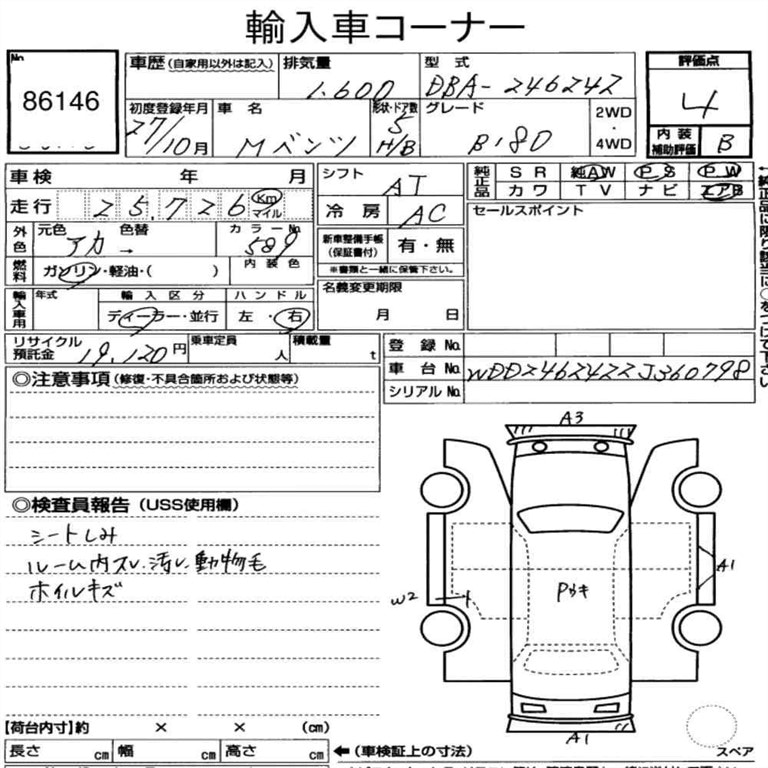 輸入車コーナー
No.
86146
車歴 (自家用以外は記入) 排気量 1.600 型式 DBA-246242
評価点 4
初度登録年月 27/10月 車名 Mベンツ 形状・ドア数 5 H/B グレード B・180 2WD・4WD
内装補助評価 B
車検 年 月
シフト AT
純正品 SR 純AW PS PW
カワ TV ナビ エアB
走行 25,726 Km マイル
冷房 AC
セールスポイント
外色 元色 アカ 色替 → カラーNo. 589
新車整備手帳 (保証書付) 有・無
※書類と一緒に保管下さい。
燃料 ガソリン・軽油・( ) 内装色
名義変更期限 月 日
輸入車用 年式 輸入区分 ディーラー・並行 ハンドル 左・右
リサイクル預託金 19,120円 乗車定員 人 積載量 t
登録No.
車台No. WDD2462422J360798
シリアルNo.
◎注意事項 (修復・不具合箇所および状態等)
A3
◎検査員報告 (USS使用欄)
シートしみ
ルーム内スレ.汚レ.動物毛
ホイルキズ
A1
Pカキ
W2
A1
スペア
【荷台内寸】約 × × (cm)
長さ cm 幅 cm 高さ cm
←(車検証上の寸法)